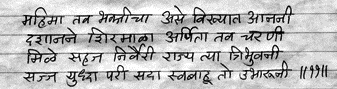 महिमा तव भक्तीचा असे विख्यात आननी
दशानने शिरमाळा अर्पिता तव चरणी
मिळे सहज निर्वैरी राज्य त्या त्रिभुवनी
सज्ज युध्दा परी सदा स्वबाहू तो उभारूनी ॥११॥